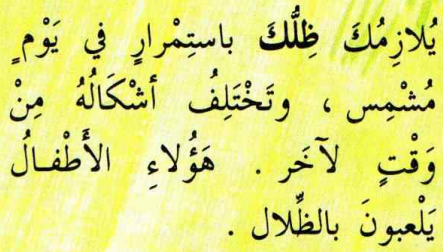 يُلازِمُكَ ظِلُّكَ باستِمْرارٍ في يَوْمٍ
مُشْمِس ، وتَخْتَلِفُ أشْكَالُهُ مِنْ
وَقْتٍ لآخَر . هَؤُلاءِ الأَطْفـالُ
يَلْعبونَ بالظِّلال .